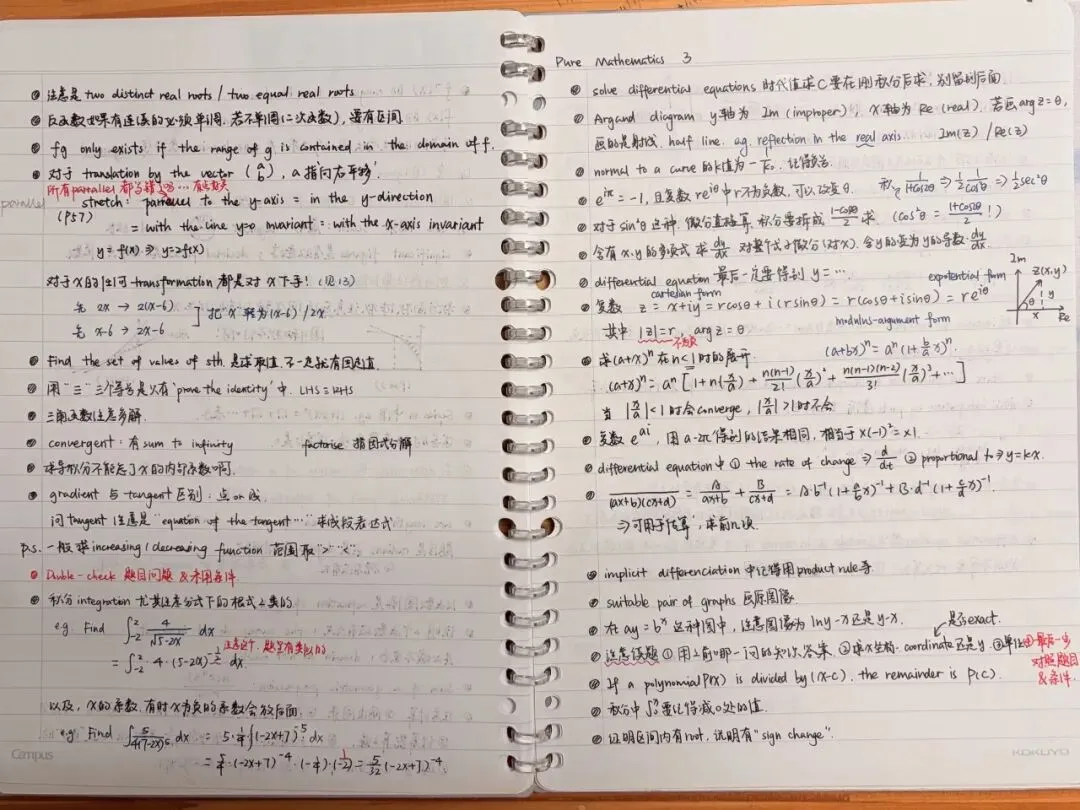 注意是 two distinct real roots / two equal real roots
反函数如果有连续的必须单调. 若不单调(二次函数), 要有区间
fg only exists if the range of g is contained in the domain of f.
对于 translation by the vector (a b), a 指向右平移
所有 parallel 都写错
parallel
stretch: parallel to the y-axis = in the y-direction
(PS7)
= with the line y=0 invariant = with the x-axis invariant
y = f(x) ⇒ y=2f(x)
对于 x 的任何 transformation 都是对 x 下手! (见13)
先 2x → 2(x-6)
先 x-6 → 2x-6
] 把 "x" 转为 (x-6) / 2x
Find the set of values of sth. 是求取值. 不一定就有固定值
用 "≡" 三个等号是只有 'prove the identity' 中. LHS=RHS
三角函数注意多解.
convergent : 有 sum to infinity factorise 指因式分解
求导积分不能忘了 x 的内部系数啊.
gradient 与 tangent 区别 : 点 or 线
问 tangent 注意是 "equation of the tangent …" 求线段表达式
p.s. 一般求 increasing / decreasing function 范围取 ">" "<"
Duble-check 题目问题 & 未用条件
积分 integration 尤其注意分式下的根式之类的.
e.g. Find ∫₋₂² 4/√(5-2x) dx
注意这个, 题里有类似的
= ∫₋₂² · 4 · (5-2x)^(-1/2) dx
以及, x 的系数. 有时 x 为负的系数会放后面.
e.g. Find ∫ 5/(4(7-2x)^5) dx = 5·1/4 ∫(-2x+7)^-5 dx
= 5/4 · (-2x+7)^-4 · (-1/4)·(-1/2) = 5/32 (-2x+7)^-4.
Campus
Pure Mathematics 3
solve differential equations 时代值求 C 要在刚积分后求, 别留到后面
Argand diagram y轴为 Im (improper), x轴为 Re (real). 若画 arg z = θ,
画的是射线. half line. eg. reflection in the real axis Im(z) / Re(z)
normal to a curve 的 k 值为 -1/k₀. 记得
e^(iπ) = -1, 且复数 re^(iθ) 中 r 不为负数, 可以改变 θ. 1/(1+cos2θ) ⇒ 1/2 1/cos²θ ⇒ 1/2 sec²θ
对于 sin²θ 这种. 微分直接算. 积分要拆成 (1-cos2θ)/2 求 (cos²θ = (1+cos2θ)/2 !)
含有 x, y 的多项式求 dy/dx 对整个式子微分(对x). 含y的变为y的导数·dy/dx.
differential equation 最后一定要得到 y = …
cartesian form
expotential form
复数 z = x+iy = rcosθ + i(rsinθ) = r(cosθ+isinθ) = re^(iθ)
其中 |z|=r, arg z = θ
不为负
modulus-argument form
Im
z(x,y)
r
y
θ
x
Re
求 (a+x)^n 在 n<1 时的展开 (a+bx)^n = a^n (1+b/a x)^n.
(a+x)^n = a^n [1 + n(x/a) + n(n-1)/2! (x/a)² + n(n-1)(n-2)/3! (x/a)³ + …]
当 |x/a|<1 时会 converge, |x/a|>1 时不会
复数 e^(ai), 用 a-2π 得到的结果相同, 相当于 ×(-1)² = ×1.
differential equation 中 ① the rate of change ⇒ d/dt ② proportional to ⇒ y=kx.
/((ax+b)(cx+d)) = A/(ax+b) + B/(cx+d) = A·b⁻¹(1+a/b x)⁻¹ + B·d⁻¹(1+c/d x)⁻¹.
⇒ 可用于估算, 求前n项
implicit differenciation 中记得用 product rule 等
suitable pair of graphs 画原图像
在 ay = b^x 这种图中, 注意图像为 lny-x 还是 y-x.
是否 exact.
注意读题 ① 用上前哪一问的知识/答案 ② 求x坐标. coordinate 还是 y. ③ 单位
④ 最后一步
对照题目
& 条件.
If a polynomial P(x) is divided by (x-c), the remainder is P(c).
积分中 ∫₀ 要记得减0处的值.
证明区间内有 root, 说明有 "sign change".
KOKUYO